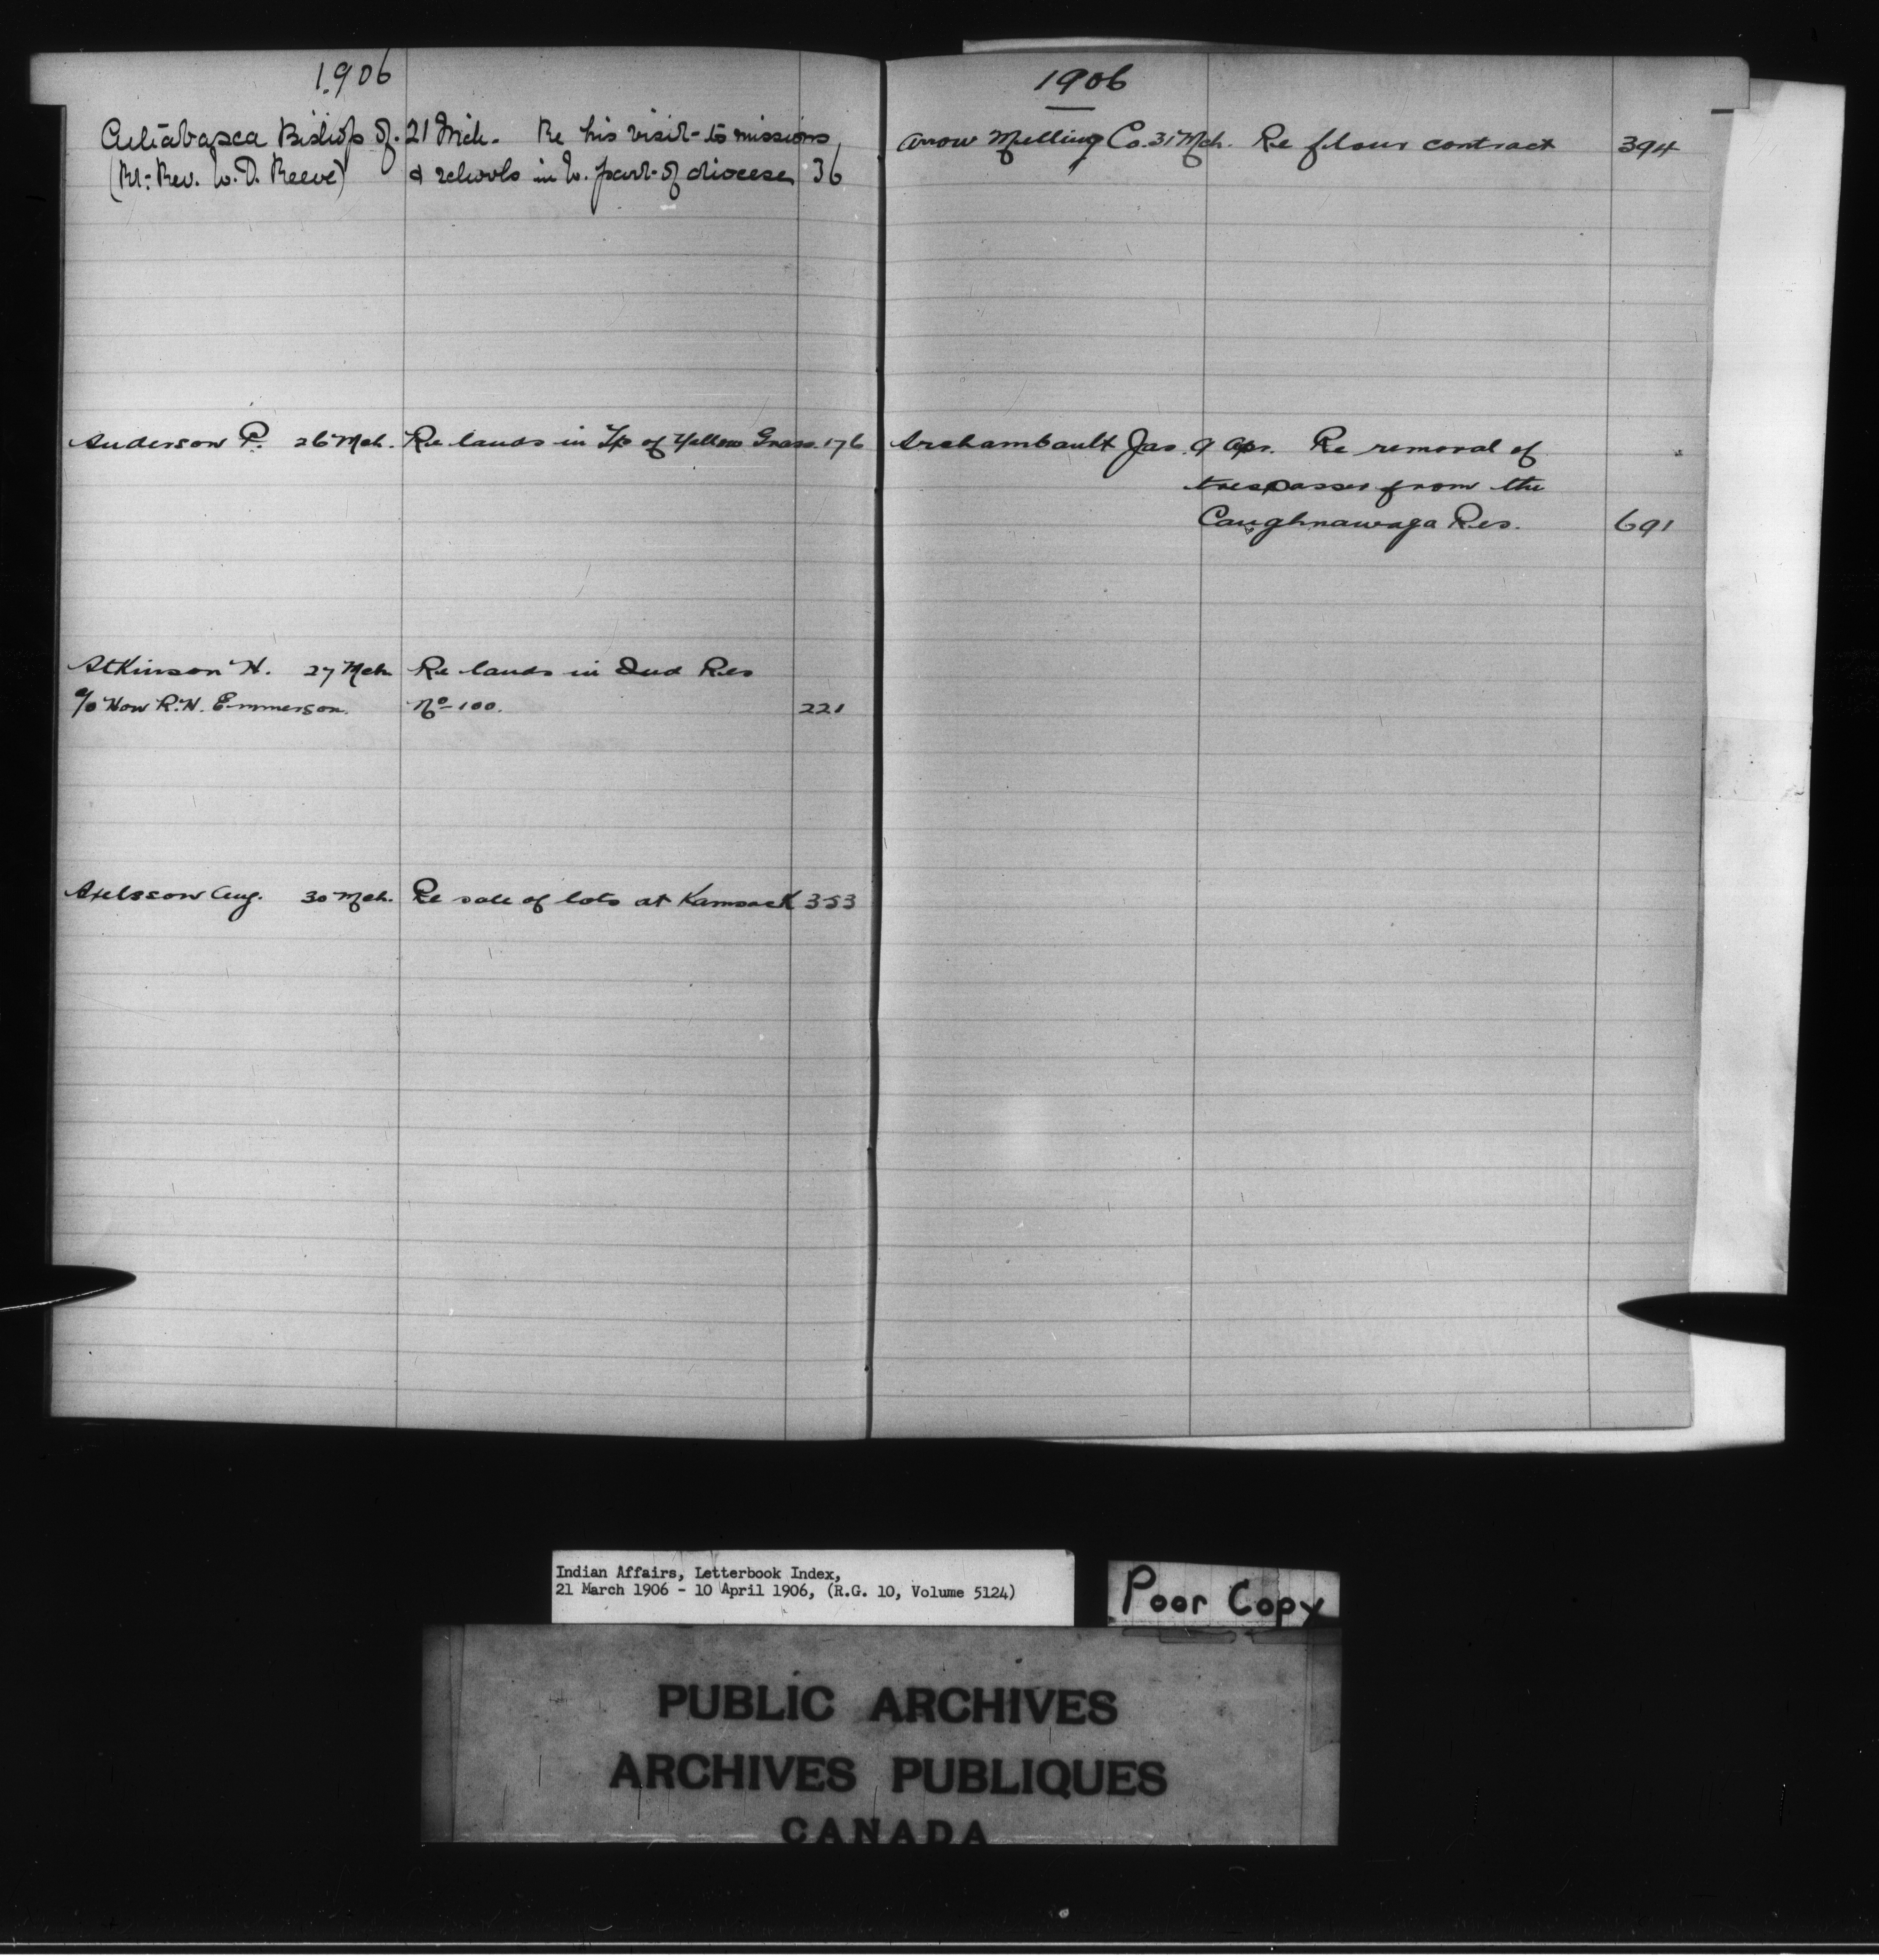 1906
Athabasca Bishop of. 21 Mch. Re his visit to missions
(Rt. Rev. W. D. Reeve) & schools in W. part of diocese 36
Anderson P. 26 Mch. Re lands in Tp of Yellow Grass. 176
Atkinson H. 27 Mch Re lands in Ind Res
c/o Hon R. H. Emmerson. No 100. 221
Axelsson Aug. 30 Mch. Re sale of lots at Kamsack 353
1906
Arrow Milling Co. 31 Mch. Re flour contract 394
Archambault Jas. 9 Apr. Re removal of
trespasser from the
Caughnawaga Res. 691
Indian Affairs, Letterbook Index,
21 March 1906 - 10 April 1906, (R.G. 10, Volume 5124)
Poor Copy
PUBLIC ARCHIVES
ARCHIVES PUBLIQUES
CANADA